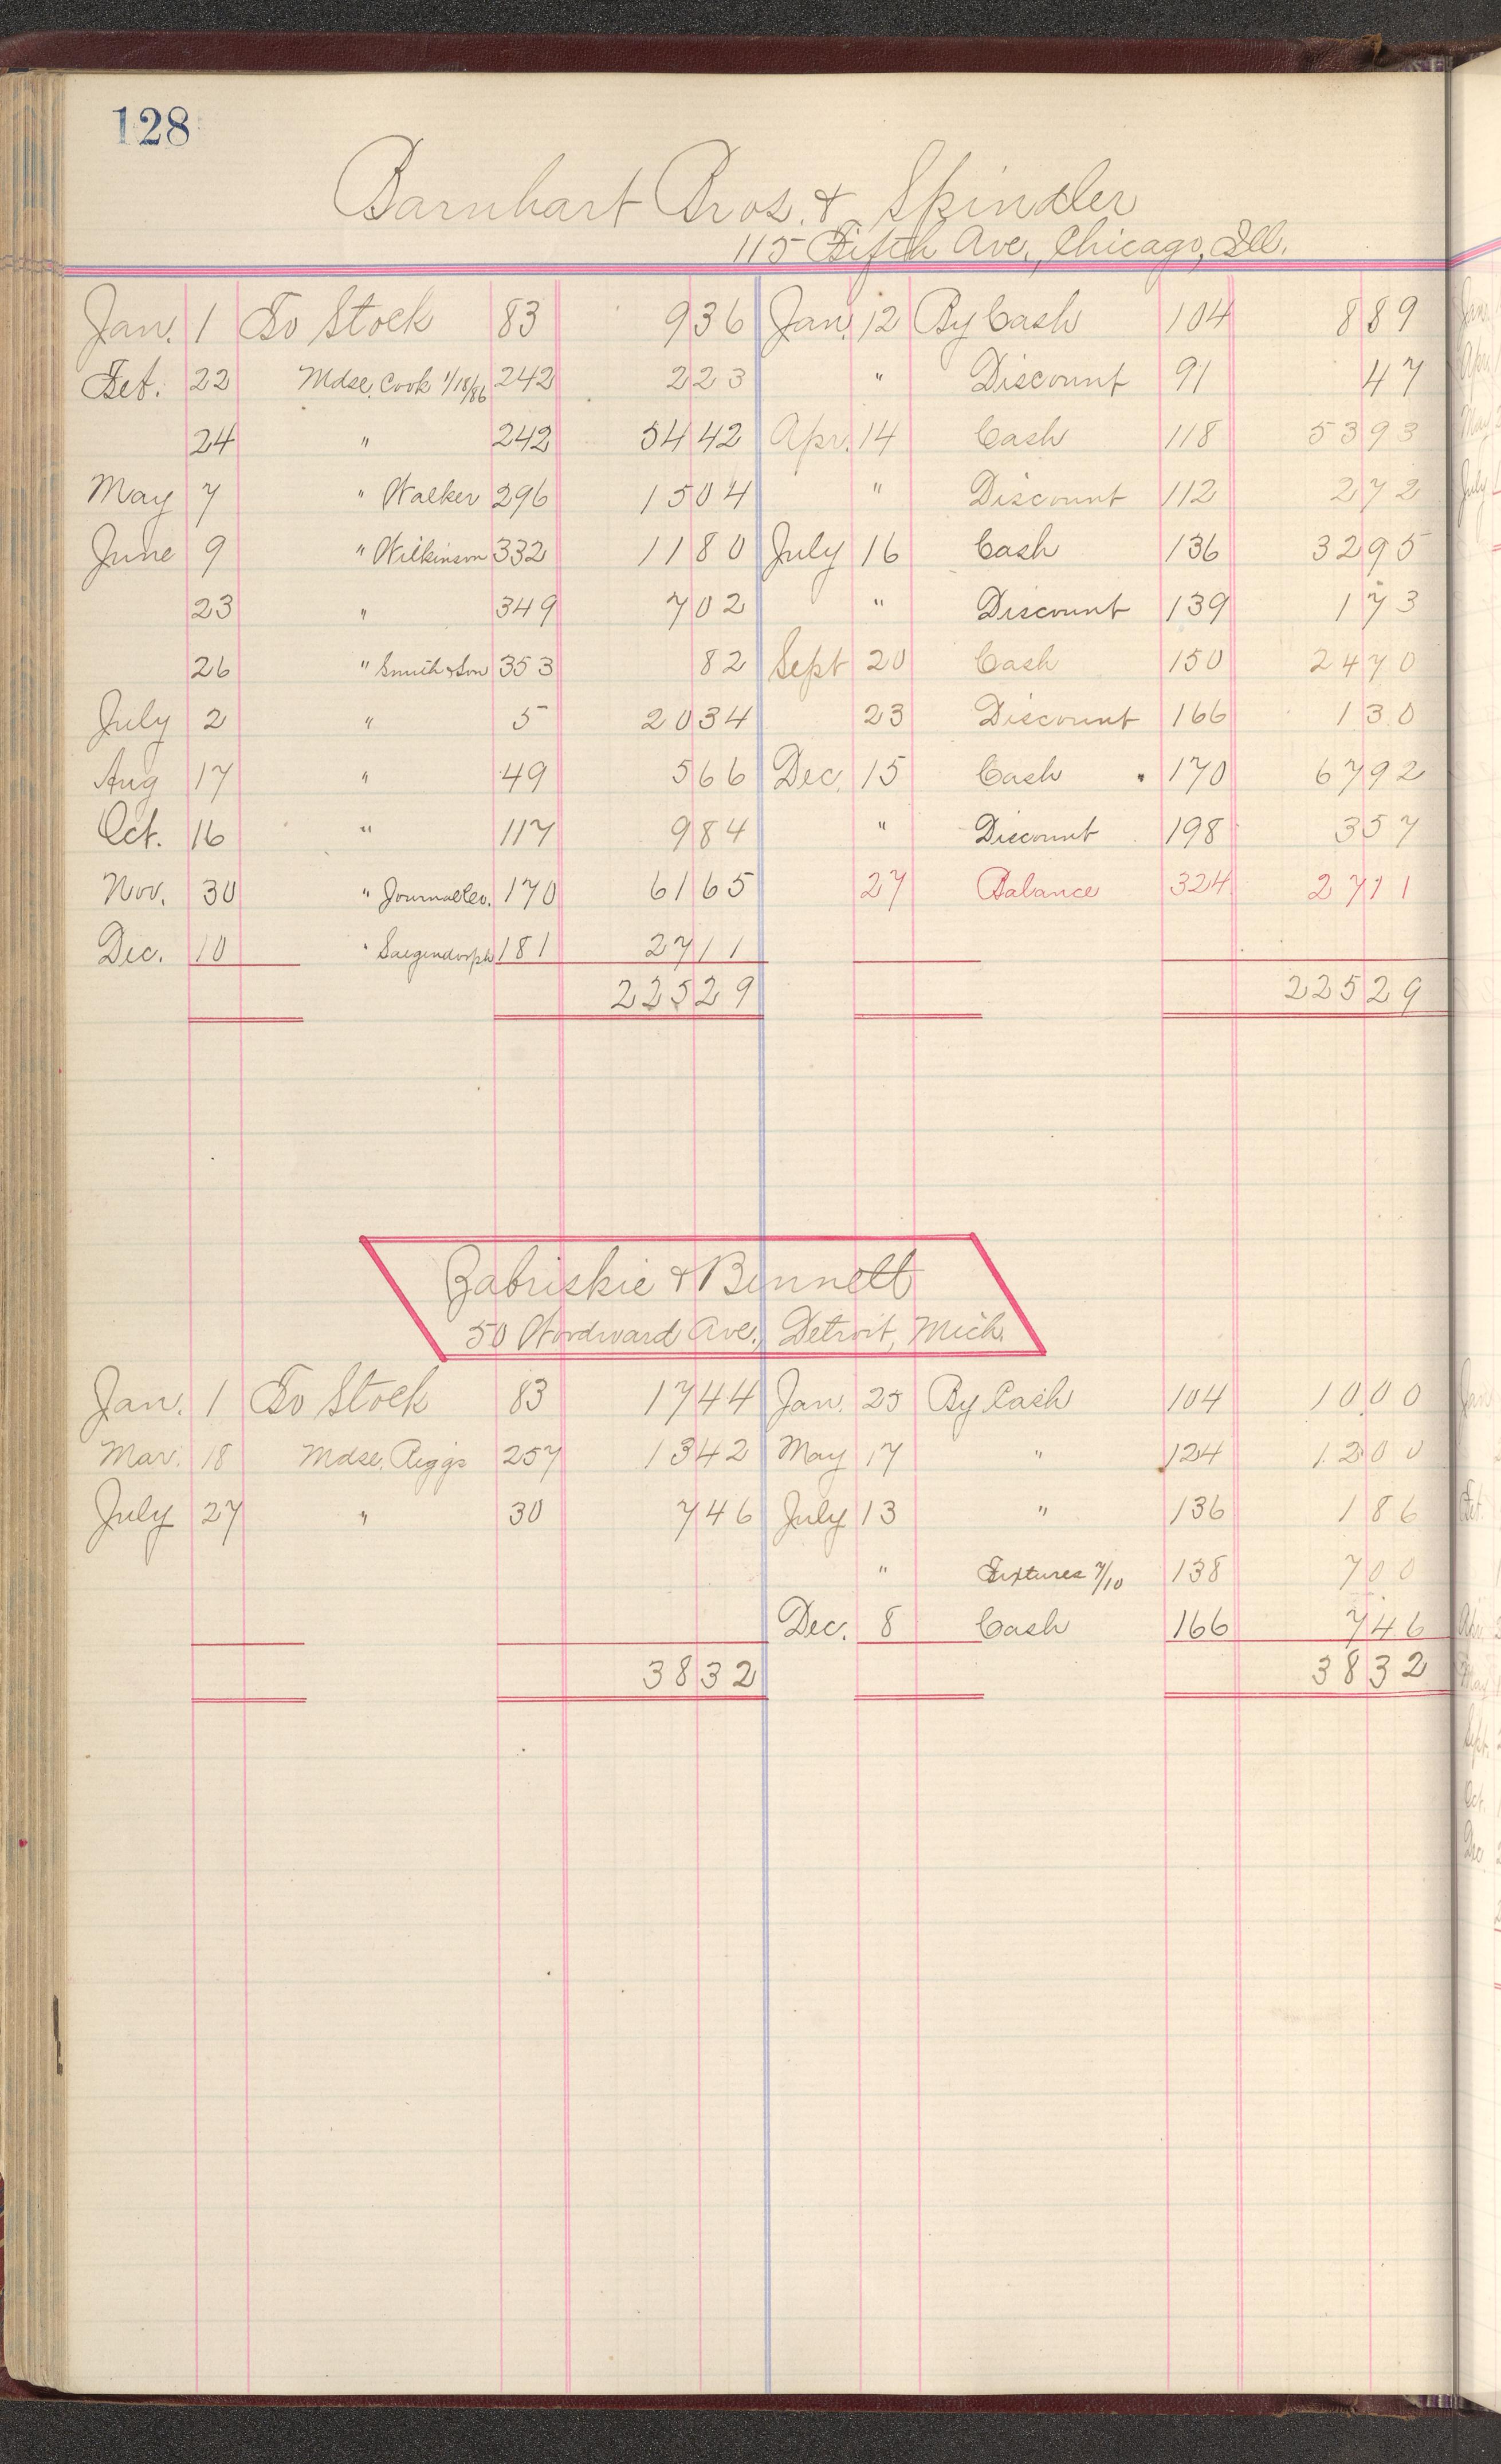 128
Barnhart Bros. & Spindler
115 Fifth Ave., Chicago, Ill.
Jan. 1 To Stock 83 9 36 Jan. 12 By Cash 104 8 89
Feb. 22 Mdse. Cook 1/18/86 242 2 23 " Discount 91 47
24 " 242 54 42 Apr. 14 Cash 118 53 93
May 7 " Walker 296 15 04 " Discount 112 2 72
June 9 " Wilkinson 332 11 80 July 16 Cash 136 32 95
23 " 349 7 02 " Discount 139 1 73
26 " Smith & Son 353 82 Sept 20 Cash 150 24 70
July 2 " 5 20 34 23 Discount 166 1 30
Aug 17 " 49 5 66 Dec. 15 Cash 170 67 92
Oct. 16 " 117 9 84 " Discount 198 3 57
Nov. 30 " Journal Co. 170 61 65 27 Balance 324 27 11
Dec. 10 " 181 27 11
225 29 225 29
Zabriskie & Bennett
50 Woodward Ave., Detroit, Mich.
Jan. 1 To Stock 83 17 44 Jan. 25 By Cash 104 10 00
Mar. 18 Mdse. Riggs 257 13 42 May 17 " 124 12 00
July 27 " 30 7 46 July 13 " 136 1 86
" Fixtures 7/10 138 7 00
Dec. 8 Cash 166 7 46
38 32 38 32